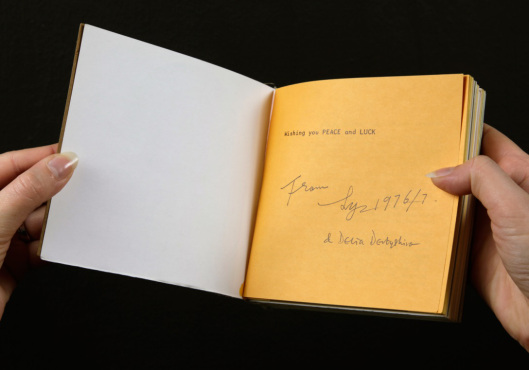 Wishing you PEACE and LUCK
From
Lyz 1976/7.
& Delia Derbyshire